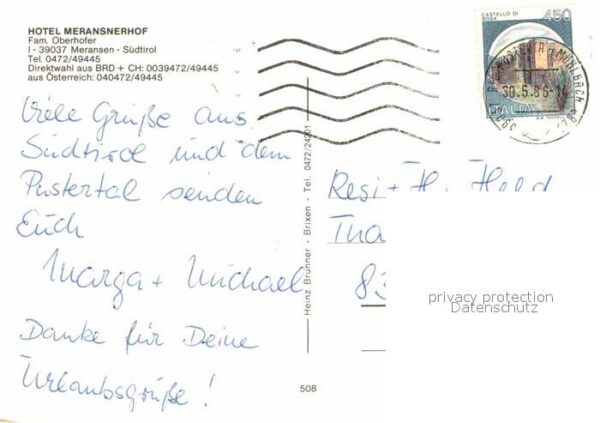 HOTEL MERANSNERHOF
Fam. Oberhofer
I - 39037 Meransen - Südtirol
Tel. 0472/49445
Direktwahl aus BRD + CH: 0039472/49445
aus Österreich: 040472/49445
CASTELLO DI
ROSA
450
ITALIA
30.5.86-14
Viele Grüße aus
Südtirol und dem
Pustertal senden
Euch
Marga + Michael
Danke für Deine
Urlaubsgrüße!
Heinz Brunner - Brixen - Tel. 0472/24201
508
Resi + H.
83
privacy protection
Datenschutz